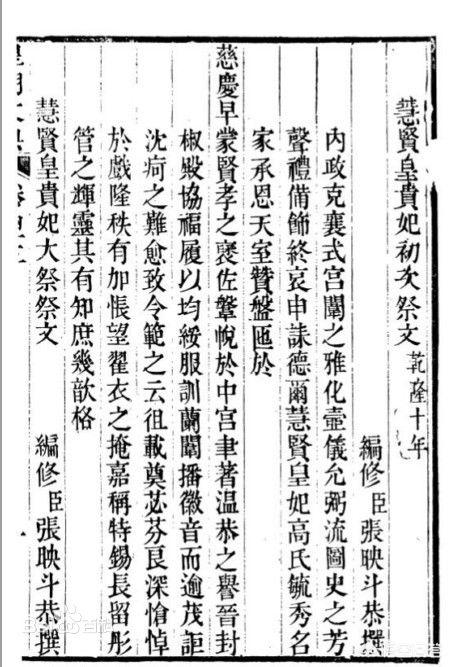 慧賢皇貴妃初次祭文乾隆十年
編修臣張映斗恭撰
內政克襄式宮闈之雅化壼儀允弼流圖史之芳
聲禮備飾終哀申誄德爾慧賢皇妃高氏毓秀名
家承恩天室贊盤匜於
慈慶早蒙賢孝之襃佐鞶帨於中宮聿著溫恭之譽晉封
椒殿協福履以均綏服訓蘭闈播徽音而逾茂詎
沈痾之難愈致令範之云徂載奠苾芬良深愴悼
於戲隆秩有加悵望翟衣之掩嘉稱特錫長留彤
管之輝靈其有知庶幾歆格
慧賢皇貴妃大祭祭文
編修臣張映斗恭撰
皇朝文典
百科